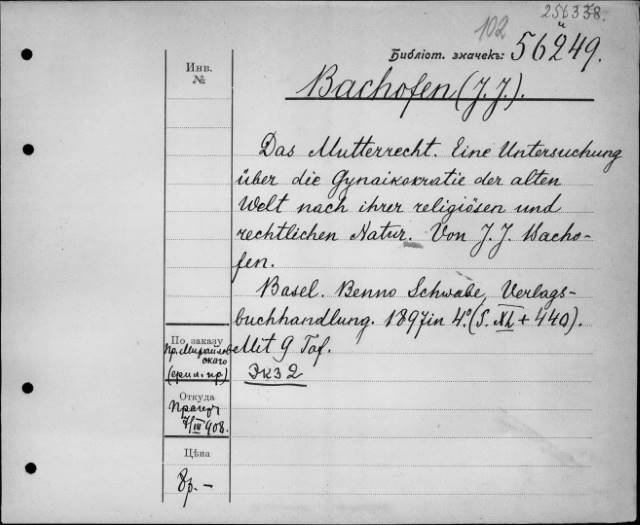 256338.
102
Библіот. значекъ: 56249.
Инв.
№
Bachofen (J. J.).
Das Mutterrecht. Eine Untersuchung
über die Gynaikokratie der alten
Welt nach ihrer religiösen und
rechtlichen Natur. Von J. J. Bacho-
fen.
Basel. Benno Schwabe, Verlags-
buchhandlung. 1897 in 4.° (S. XL + 440).
Mit 9 Taf.
Экз 2
По заказу
пр. Михайлов
скаго
Откуда
7/III 908.
Цѣна
8р. —